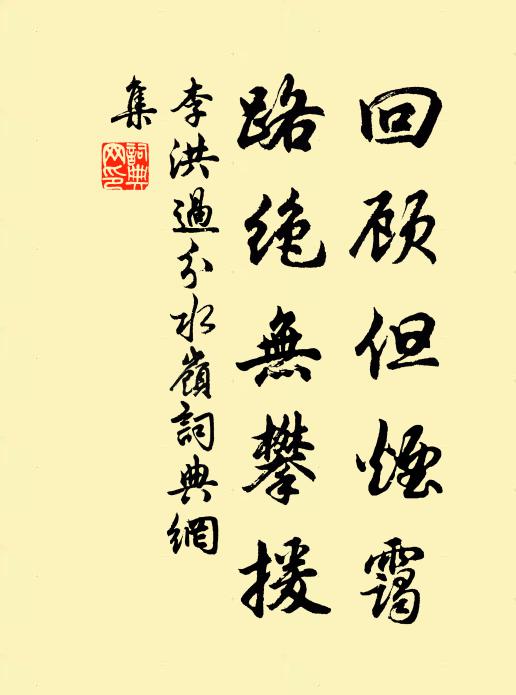 回顾但煙靄
路绝無攀援
李洪過分水嶺詞典網
集
詞典
网印